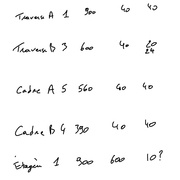 Traverse A 1 900 40 40
Traverse B 3 600 40 20
24
Cadre A 5 560 40 40
Cadre B 4 390 40 40
Etagère 1 900 600 10?